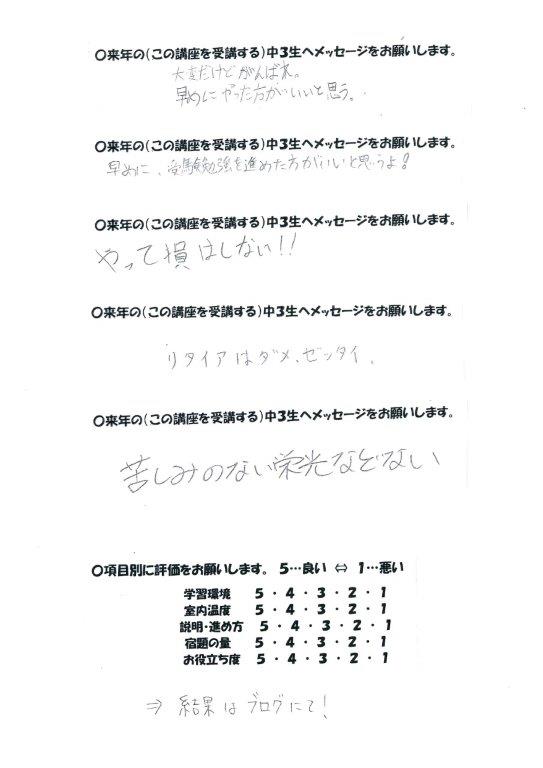 〇来年の(この講座を受講する)中3生へメッセージをお願いします。
大変だけどがんばれ。
早めにやった方がいいと思う。
〇来年の(この講座を受講する)中3生へメッセージをお願いします。
早めに、受験勉強を進めた方がいいと思うよ!
〇来年の(この講座を受講する)中3生へメッセージをお願いします。
やって損はしない!!
〇来年の(この講座を受講する)中3生へメッセージをお願いします。
リタイアはダメ、ゼッタイ。
〇来年の(この講座を受講する)中3生へメッセージをお願いします。
苦しみのない栄光などない
〇項目別に評価をお願いします。 5…良い ⇔ 1…悪い
学習環境 5・4・3・2・1
室内温度 5・4・3・2・1
説明・進め方 5・4・3・2・1
宿題の量 5・4・3・2・1
お役立ち度 5・4・3・2・1
⇒ 結果はブログにて!